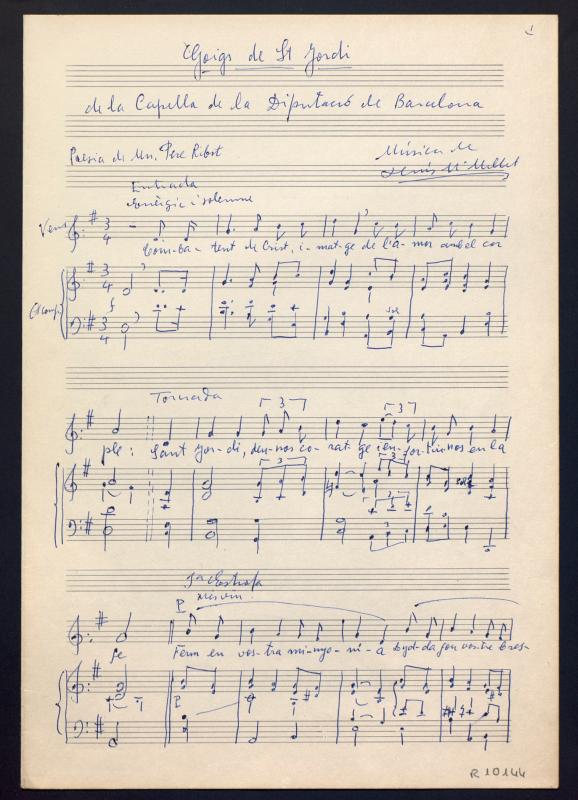 1
Goigs de St Jordi
de la Capella de la Diputació de Barcelona
Poesia de Mn. Pere Ribot
Música de
Lluís Mª Millet
Entrada
Enèrgic i solemne
Veus
3 4
Com-ba-tent de Crist, i-mat-ge de l'a-mor amb el cor
3 4
f
3 4
Tornada
3 3
ple: Sant Jor-di, deu-nos co-rat-ge i en-for-tiu-nos en la
3 3
3
1ª Estrofa
P
fe
Fèrm en vos-tra mi-nyo-ni-a
P
R 10144